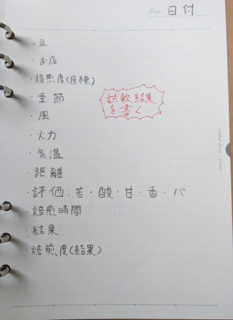 日付
・豆
・お店
・焙煎度(目標)
・季節
・風
・火力
・気温
・距離
・評価:苦・酸・甘・香・バ
・焙煎時間
・結果
・焙煎度(結果)
試飲結果
を書く